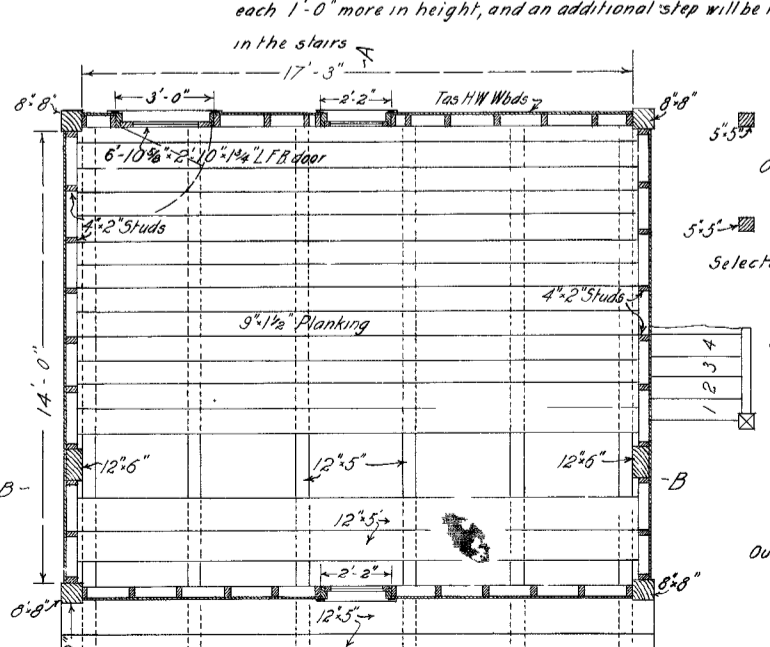 each 1'-0" more in height, and an additional step will be
in the stairs
A
17'-3"
8"×8"
3'-0"
2'-2"
Tas HW Wbds
8"×8"
5"×5"
6'-10⅝"×2'-10"×1¾" L.F.B. door
4"×2" Studs
5"×5"
Select
4"×2" Studs
9"×1½" Planking
14'-0"
1 2 3 4
12"×6"
12"×5"
12"×6"
B
B
12"×5"
2'-2"
8"×8"
8"×8"
12"×5"